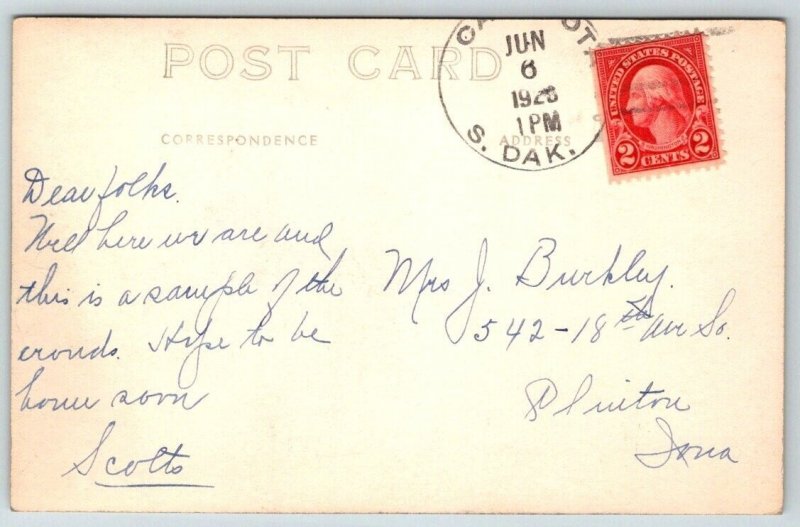 POST CARD
JUN
6
1PM
S. DAK.
UNITED STATES POSTAGE
WASHINGTON
2 CENTS 2
CORRESPONDENCE
ADDRESS
Dear folks.
Well here we are and
this is a sample of the
crowds. Hope to be
home soon
Scotts
Mrs J. Burkley.
542-18th Ave So.
Clinton
Iowa